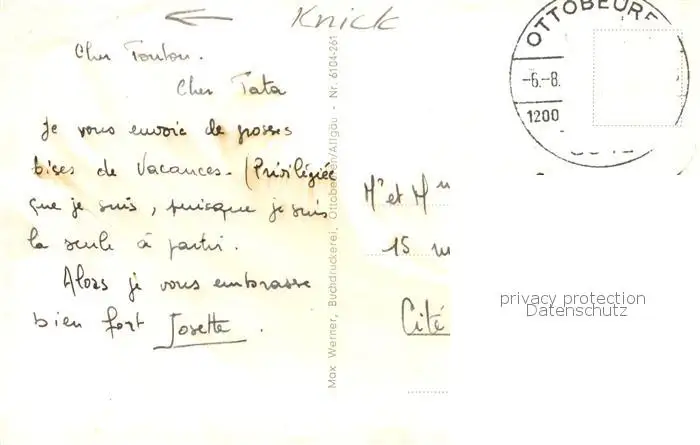 Knick
OTTOBEURE
-6.-8.
1200
Cher Tonton.
Cher Tata
Je vous envoie de grosses
bises de Vacances. (Privilégiée
que je suis, puisque je suis
la seule à partir.
Alors je vous embrasse
bien fort Josette.
Max Werner, Buchdruckerei, Ottobeuren/Allgäu - Nr. 6104-261
Mr et M
15
Cité
privacy protection
Datenschutz